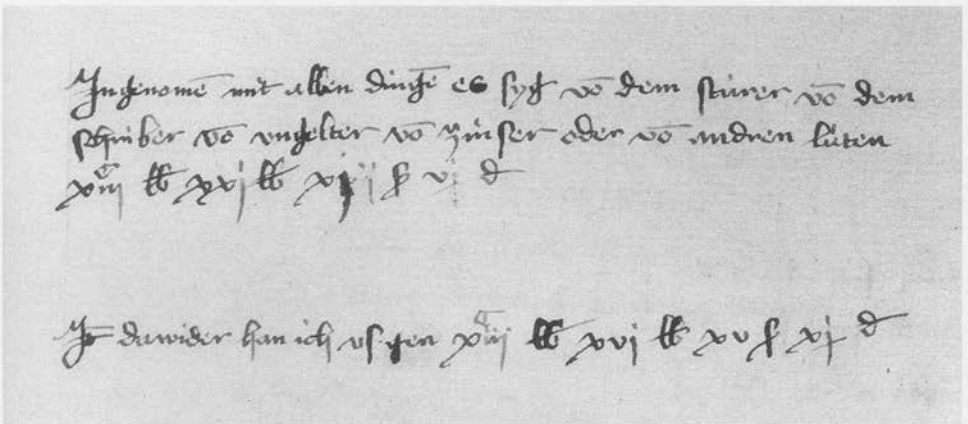 Ingenomē mit allen dingē es syg vō dem stúrer vō dem
schriber vō vngelter vō zinser oder vō andren lúten
xiiii^c lb xvj lb xiij ß vj d
It dawider han ich vsgen xiiii^c lb xvj lb xv ß xj d